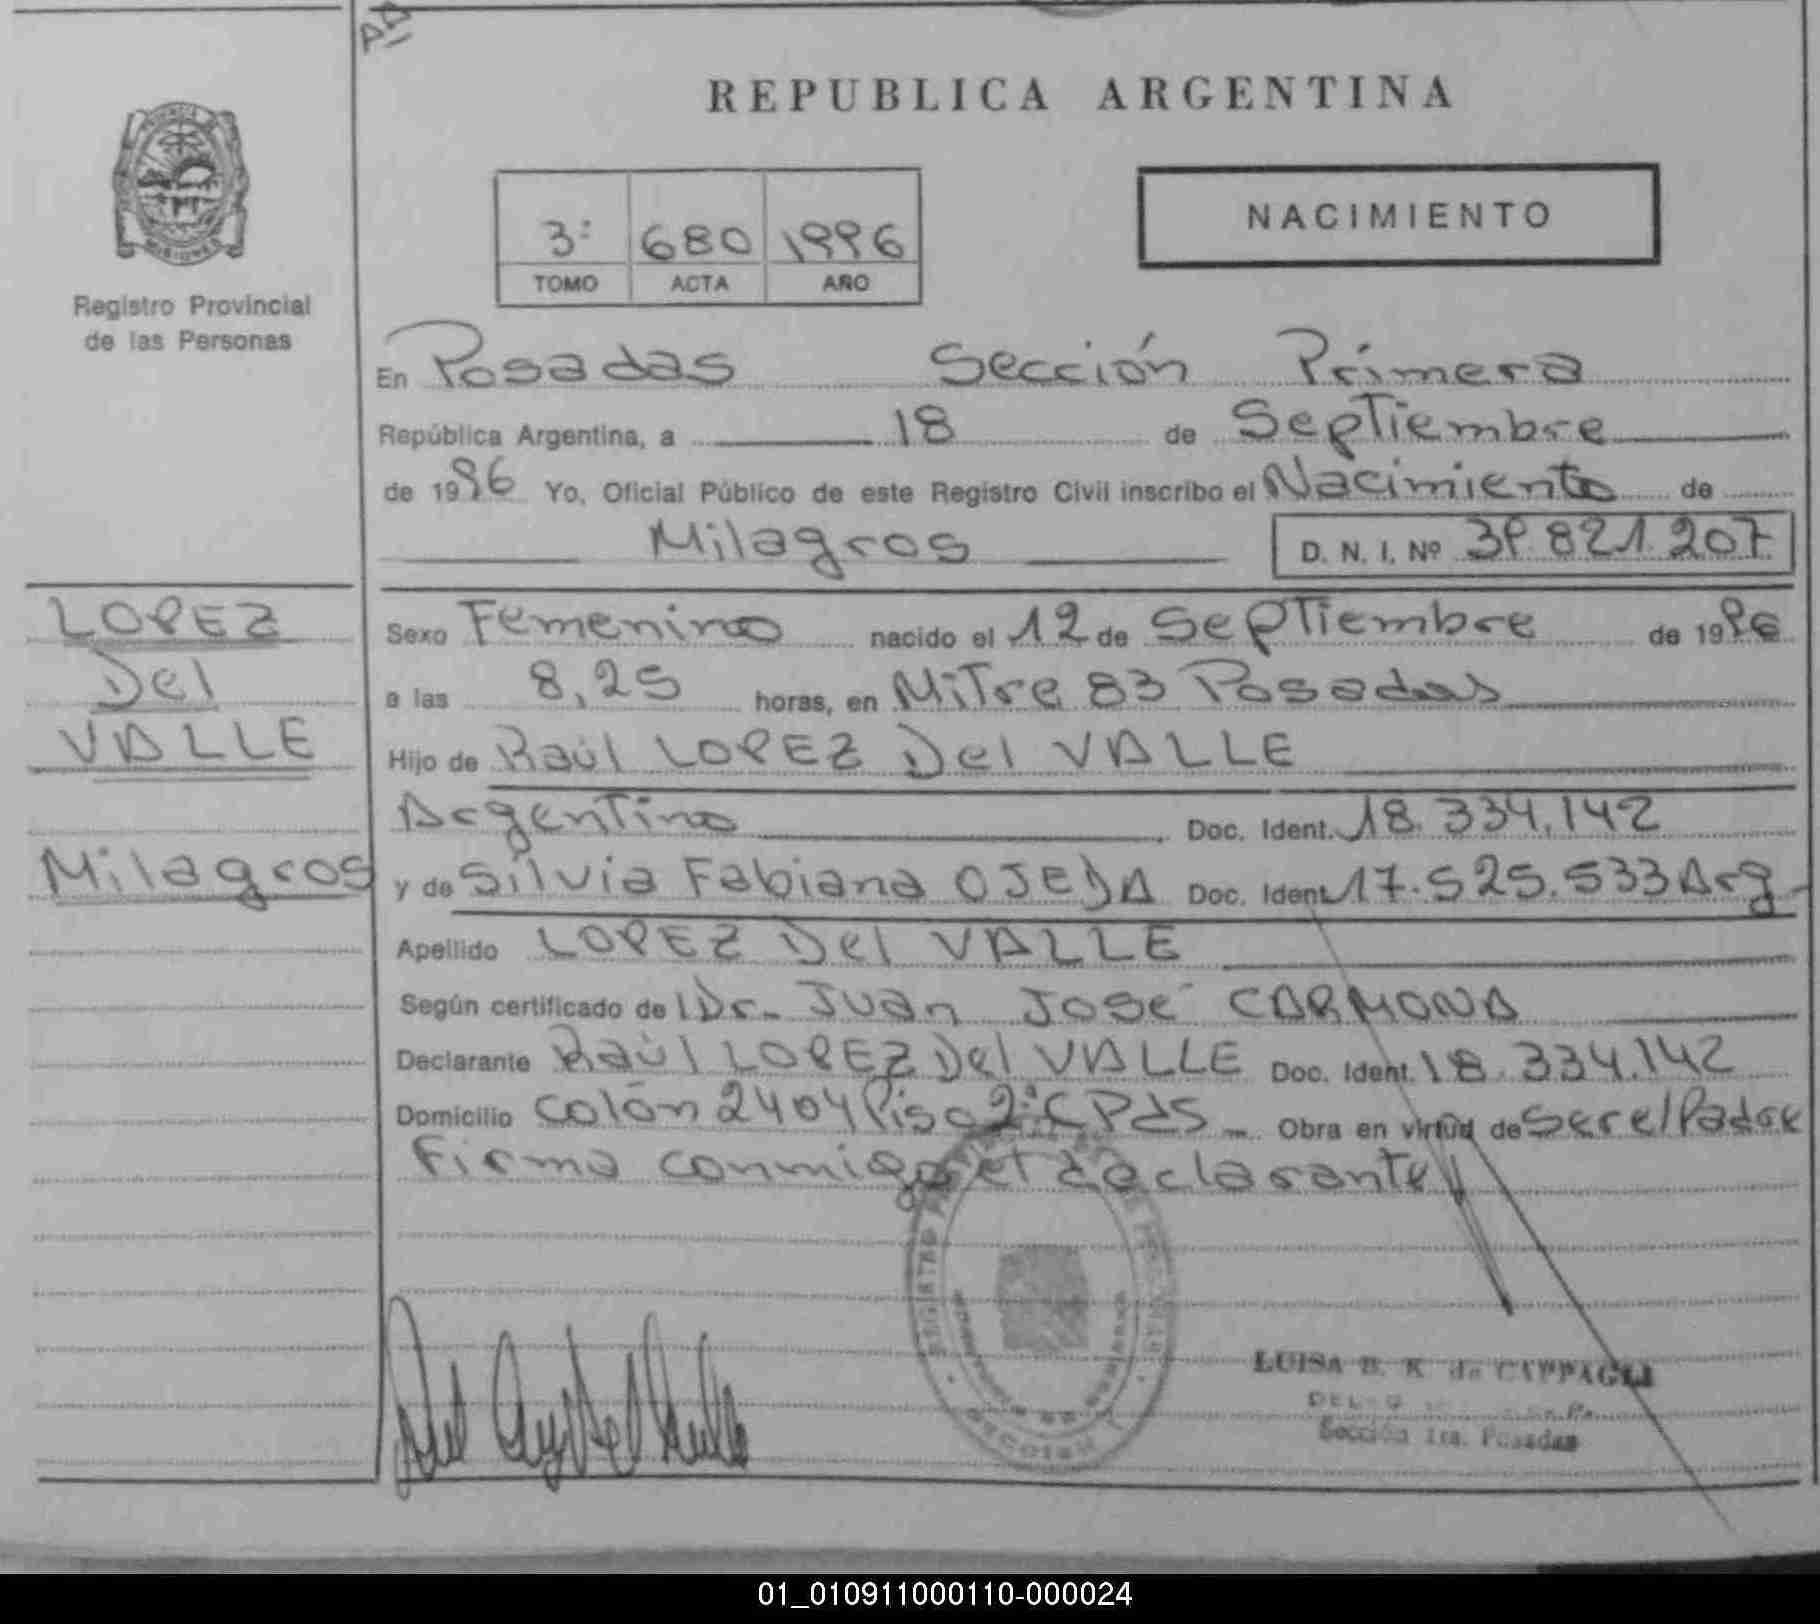 REPUBLICA ARGENTINA
MISIONES
Registro Provincial
de las Personas
3º 680 1996
TOMO ACTA AÑO
NACIMIENTO
En Posadas Sección Primera
República Argentina, a 18 de Septiembre
de 1996 Yo, Oficial Público de este Registro Civil inscribo el Nacimiento de
Milagros D. N. I. Nº 39.821.207
LOPEZ
Del
VALLE
Milagros
Sexo Femenino nacido el 12 de Septiembre de 1996
a las 8,25 horas, en Mitre 83 Posadas
Hijo de Raúl LOPEZ Del VALLE
Argentino Doc. Ident. 18.334.142
y de Silvia Fabiana OJEDA Doc. Ident. 17.525.533 Arg
Apellido LOPEZ Del VALLE
Según certificado de Dr. Juan José CARMONA
Declarante Raúl LOPEZ Del VALLE Doc. Ident. 18.334.142
Domicilio Colón 2404 Piso 2º C Pds Obra en virtud de Ser el Padre
Firma conmigo el declarante
LUISA B. K. de CAPPAGLI
Sección 1ra. Posadas
01_010911000110-000024